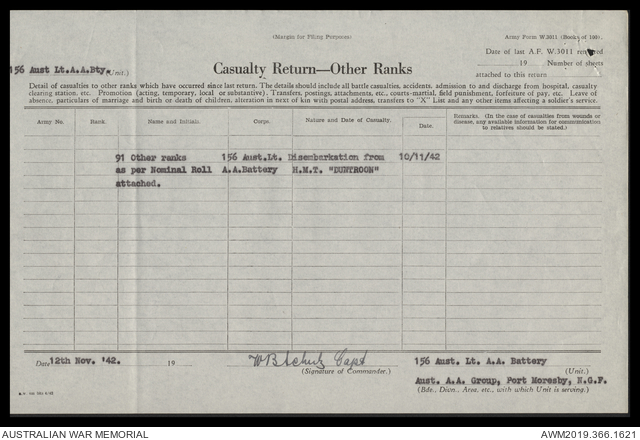 (Margin for Filing Purposes)
Army Form W.3011 (Books of 100).
Date of last A.F. W.3011 rendered
19 Number of sheets
attached to this return
156 Aust Lt.A.A.Bty. (Unit.)
Casualty Return—Other Ranks
Detail of casualties to other ranks which have occurred since last return. The details should include all battle casualties, accidents, admission to and discharge from hospital, casualty
clearing station, etc. Promotion (acting, temporary, local or substantive). Transfers, postings, attachments, etc., courts-martial, field punishment, forfeiture of pay, etc. Leave of
absence, particulars of marriage and birth or death of children, alteration in next of kin with postal address, transfers to "X" List and any other items affecting a soldier's service.
Army No. Rank. Name and Initials. Corps. Nature and Date of Casualty. Date. Remarks. (In the case of casualties from wounds or
disease, any available information for communication
to relatives should be stated.)
91 Other ranks 156 Aust.Lt. Disembarkation from 10/11/42
as per Nominal Roll A.A.Battery H.M.T. "DUNTROON"
attached.
Date 12th Nov. '42. 19 W B Schulz Capt 156 Aust. Lt. A.A. Battery
(Signature of Commander.) (Unit.)
Aust. A.A. Group, Port Moresby, N.G.F.
(Bde., Divn., Area, etc., with which Unit is serving.)
AUSTRALIAN WAR MEMORIAL AWM2019.366.1621